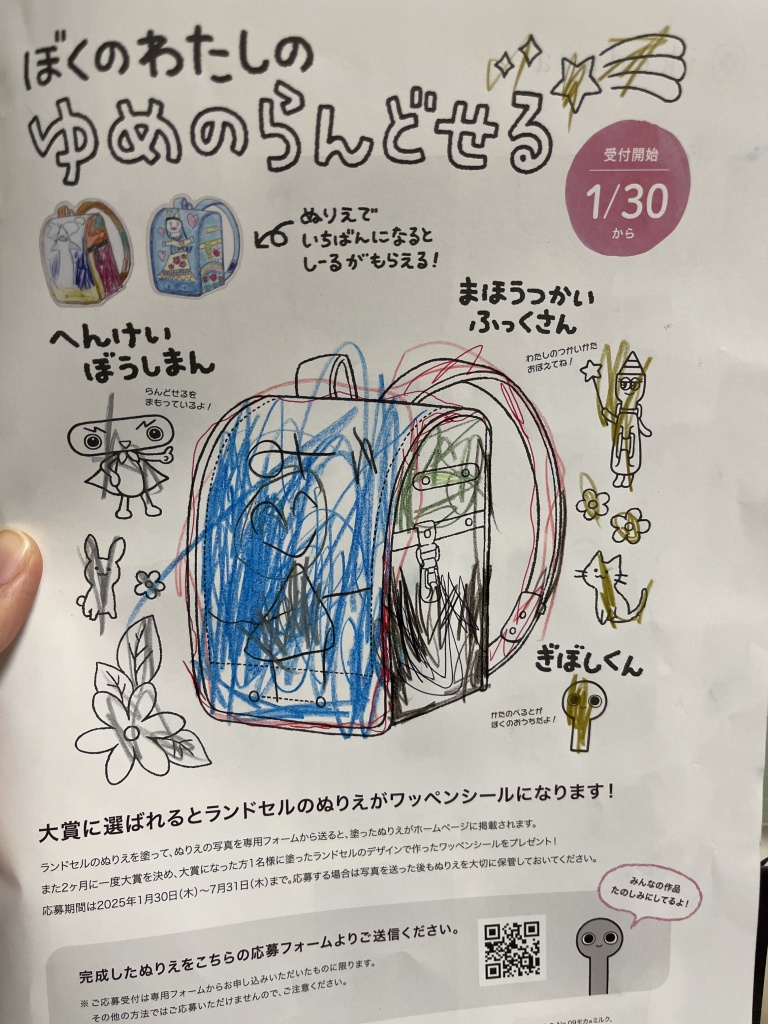 ぼくのわたしの
ゆめのらんどせる
受付開始
1/30
から
ぬりえで
いちばんになると
しーるがもらえる!
まほうつかい
ふっくさん
わたしのつかいかた
おぼえてね!
へんけい
ぼうしまん
らんどせるを
まもっているよ!
ぎぼしくん
かたのべるとが
ぼくのおうちだよ!
大賞に選ばれるとランドセルのぬりえがワッペンシールになります!
ランドセルのぬりえを塗って、ぬりえの写真を専用フォームから送ると、塗ったぬりえがホームページに掲載されます。
また2ヶ月に一度大賞を決め、大賞になった方1名様に塗ったランドセルのデザインで作ったワッペンシールをプレゼント!
応募期間は2025年1月30日(木)〜7月31日(木)まで。応募する場合は写真を送った後もぬりえを大切に保管しておいてください。
みんなの作品
たのしみにしてるよ!
完成したぬりえをこちらの応募フォームよりご送信ください。
※ご応募受付は専用フォームからお申し込みいただいたものに限ります。
その他の方法ではご応募いただけませんので、ご注意ください。
No.09モカ×ミルク、